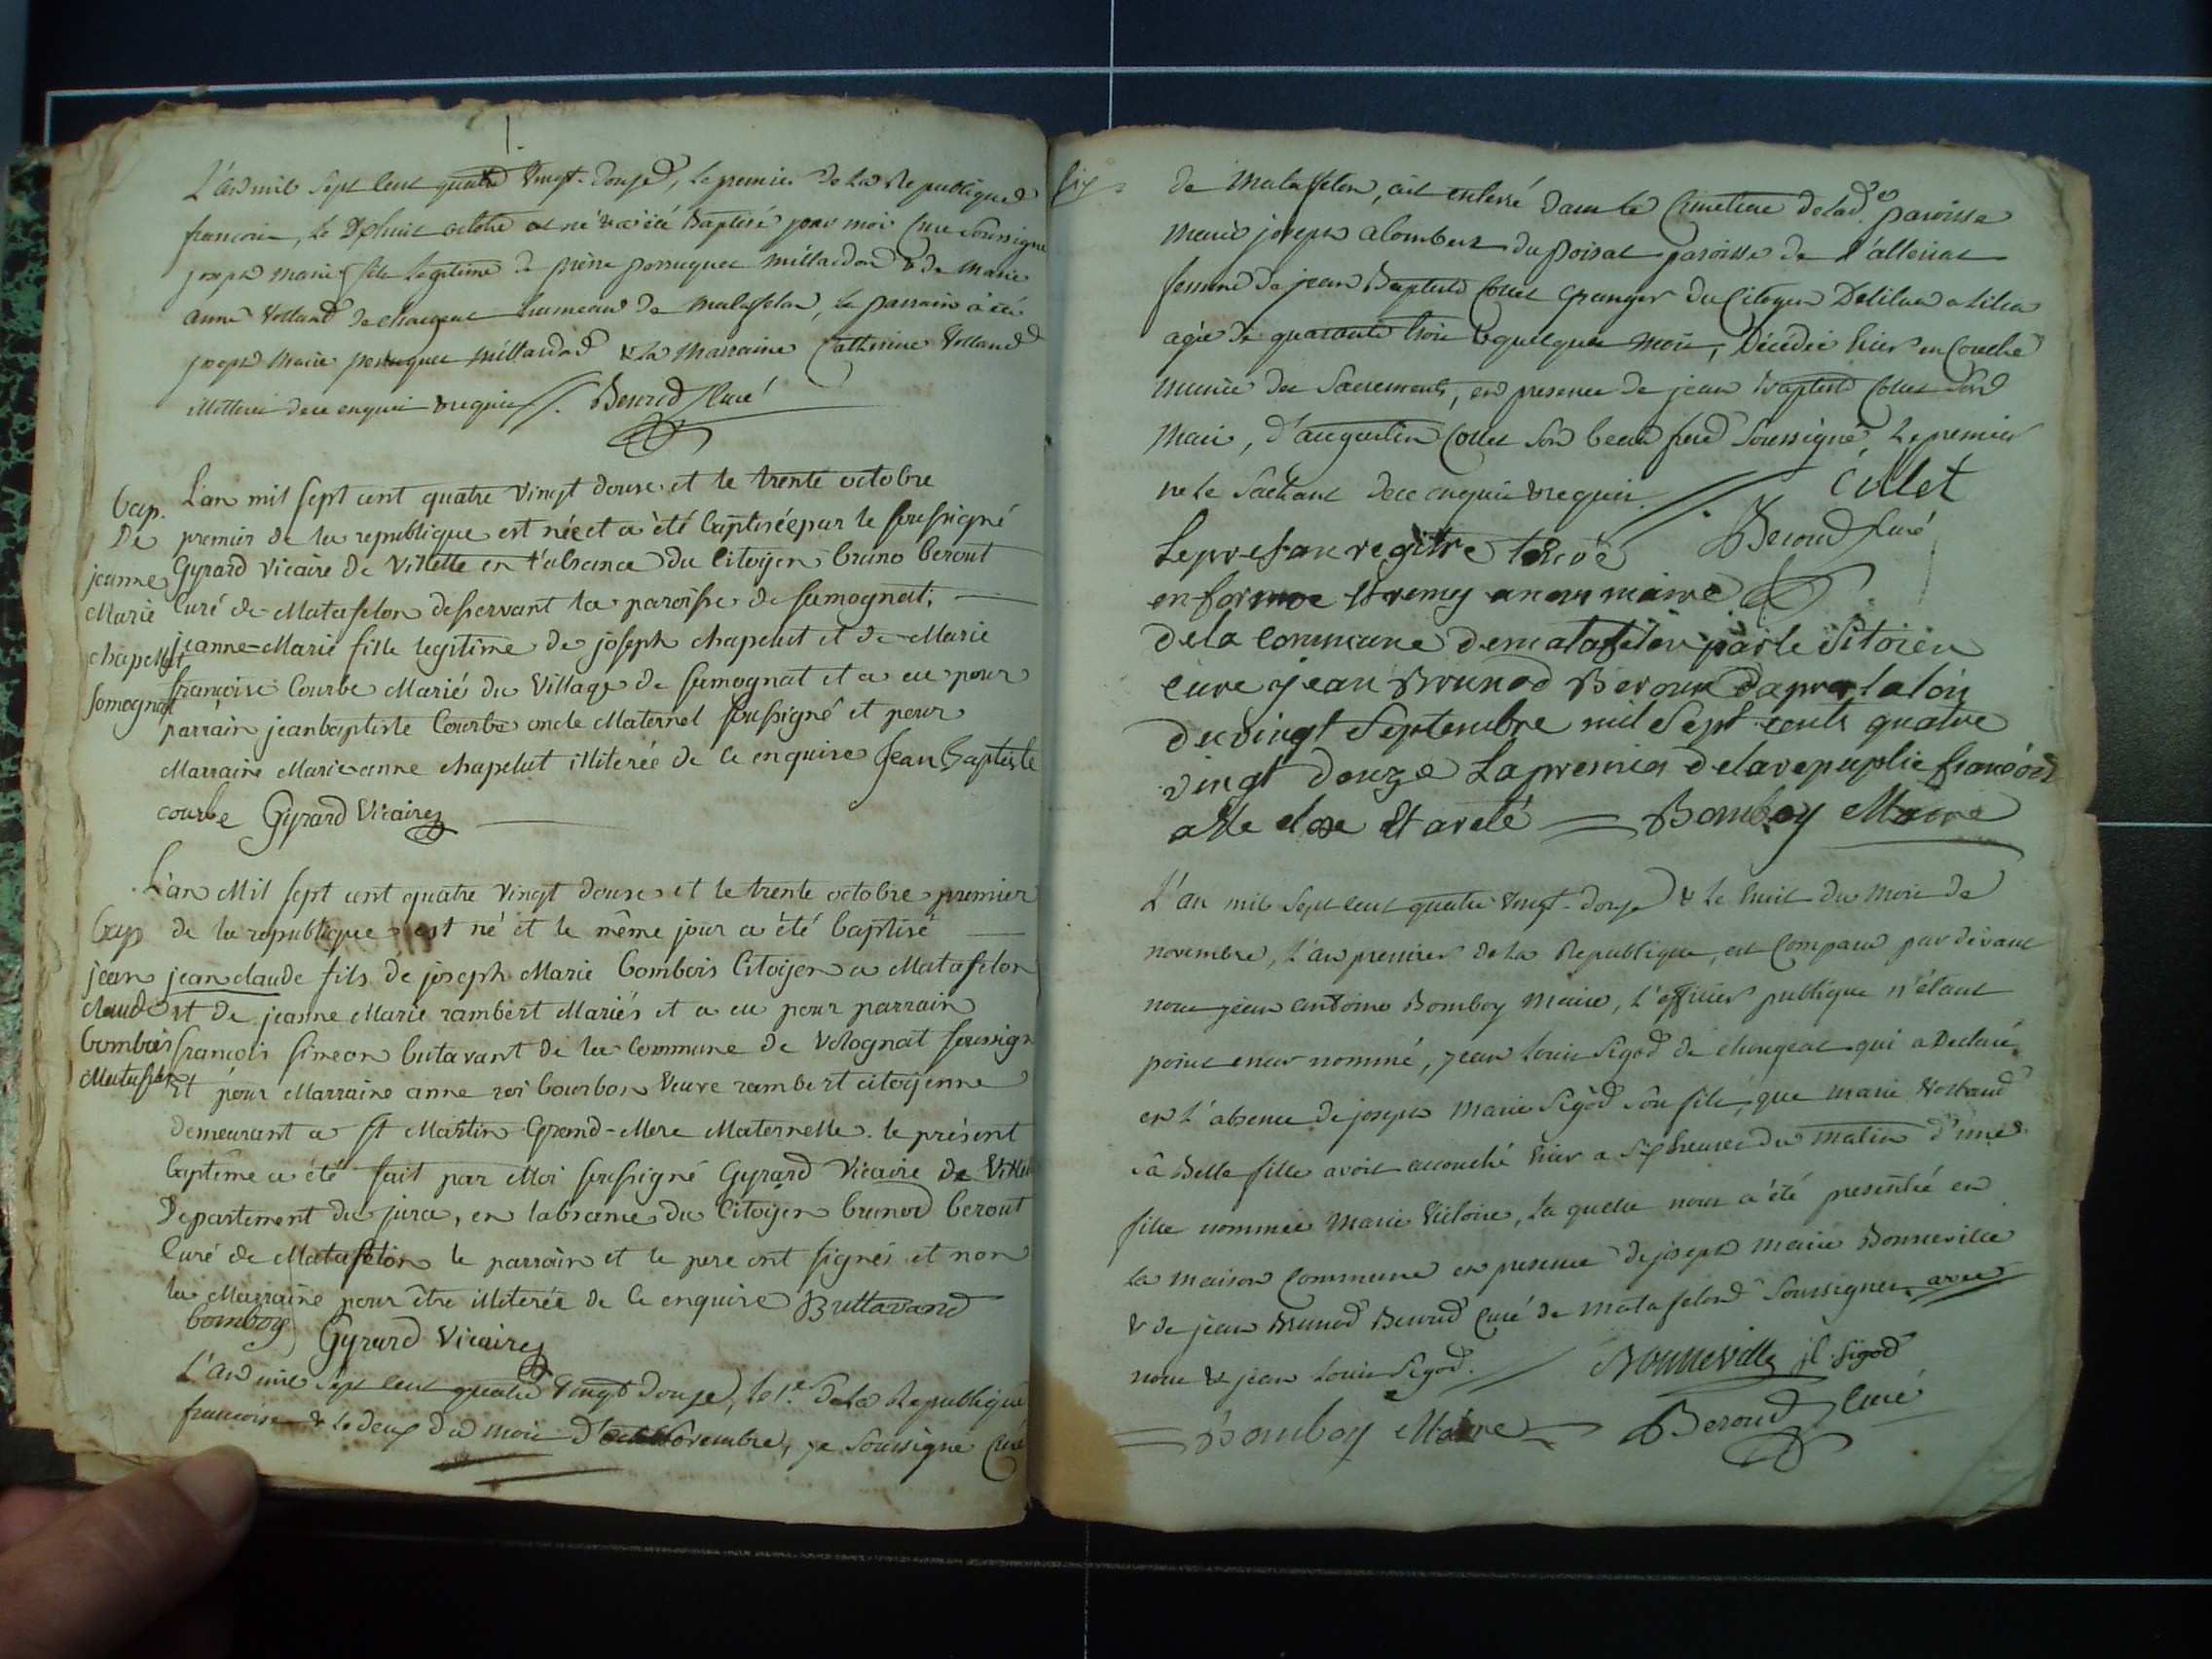 L'an mil sept cent quatre vingt-douze, le premier de la Republique
francoise, le dixhuit octobre est né & a été Baptisé par moi Curé soussigné
joseph marie fils legitime de pierre perruquet millardon & de marie
anne Volland de chaugeat hameau de matafelon, le parrain a été
joseph marie perruquet millardod & la marraine Catherine Volland
illitterés de ce enquis & requis //. Beroud Curé
Bap.
De
jeanne
Marie
chapellut
Somognat
L'an mil sept cent quatre vingt douse et le trente octobre
premier de la republique est née et a été baptisée par le soussigné
Gyrard Vicaire de Villette en l'absance du Citoyen bruno berout
Curé de Matafelon desservant la paroisse de samognat,
jeanne-Marie fille legitime de joseph chapelut et de Marie
françoise Courbe Marié du Village de samognat et a eu pour
parrain jeanbaptiste Courbe oncle Maternel soussigné et pour
Marraine Marie anne chapelut illiterée de ce enquise Jean Baptiste
courbe Gyrard Vicaire
bap
jean
claude
bombois
Matafelon
L'an Mil sept cent quatre vingt douse et le trente octobre premier
de la republique est né et le même jour a été baptisé
jean claude fils de joseph Marie bombois Citoyen a Matafelon
et de jeanne Marie rambert Mariés et a eu pour parrain
françois simeon butavant de la Commune de Volognat soussign
et pour Marraine anne roi bourbon Veuve rambert citoyenne
demeurant a st Martin Grand-Mere Maternelle. le présent
baptême a été fait par Moi soussigné Gyrard Vicaire de Villet
Departement du jura, en labsance du Citoyen brunod berout
Curé de Matafelon le parrain et le pere ont signés et non
la Marraine pour être illiterée de ce enquise Buttavand
bomboy Gyrard Vicaire
L'an mil sept cent quatre vingt douze, le 1.er de la Republique
francoise & le deux du mois d'octNovembre, je soussigné Curé
six
de Matafelon, ait enterré dans le Cimetiere de lad.e paroisse
Marie joseph alombert du poisat paroisse de l'alleiriat
femme de jean Baptiste Collet Granger du Citoyen Delilia a Lilia
agée de quarante trois & quelques mois, Décedée hier en Couche
munie des Sacrements, en presence de jean Baptiste Collet son
Mari, d'augustin Collet son beau frere Soussigné, Le premier
ne le sachant de ce enquis & requis // Collet
Beroud Curé
Le presan regitre
en forme Et remy
de la commune de matafelon par le Sitoien
cure jean Brunod Beroud dapres la loix
du vingt Septembre mil Sept cents quatre
vingt douze La premier de la repuplic francoise
a Ete close Et areté = Bomboy Maire
L'an mil sept cent quatre vingt-douze & le huit du mois de
novembre, l'an premier de la Republique, est Comparu par devant
nous jean antoine Bomboy Maire, l'officier publique n'étant
point encor nommé, jean Louis Sigod de chougeat qui a Declaré
en l'absence de joseph Marie Sigod son fils, que marie Volland
sa Belle fille avoit accouché hier a six heures du matin d'une
fille nommée Marie Victoire, la quelle nous a été presentée en
la maison Commune en presence de joseph marie Bonneville
& de jean Brunod Beroud Curé de Matafelond soussignes avec
nous & jean Louis Sigod. Bonneville jl Sigod
= Bomboy Maire = Beroud Curé